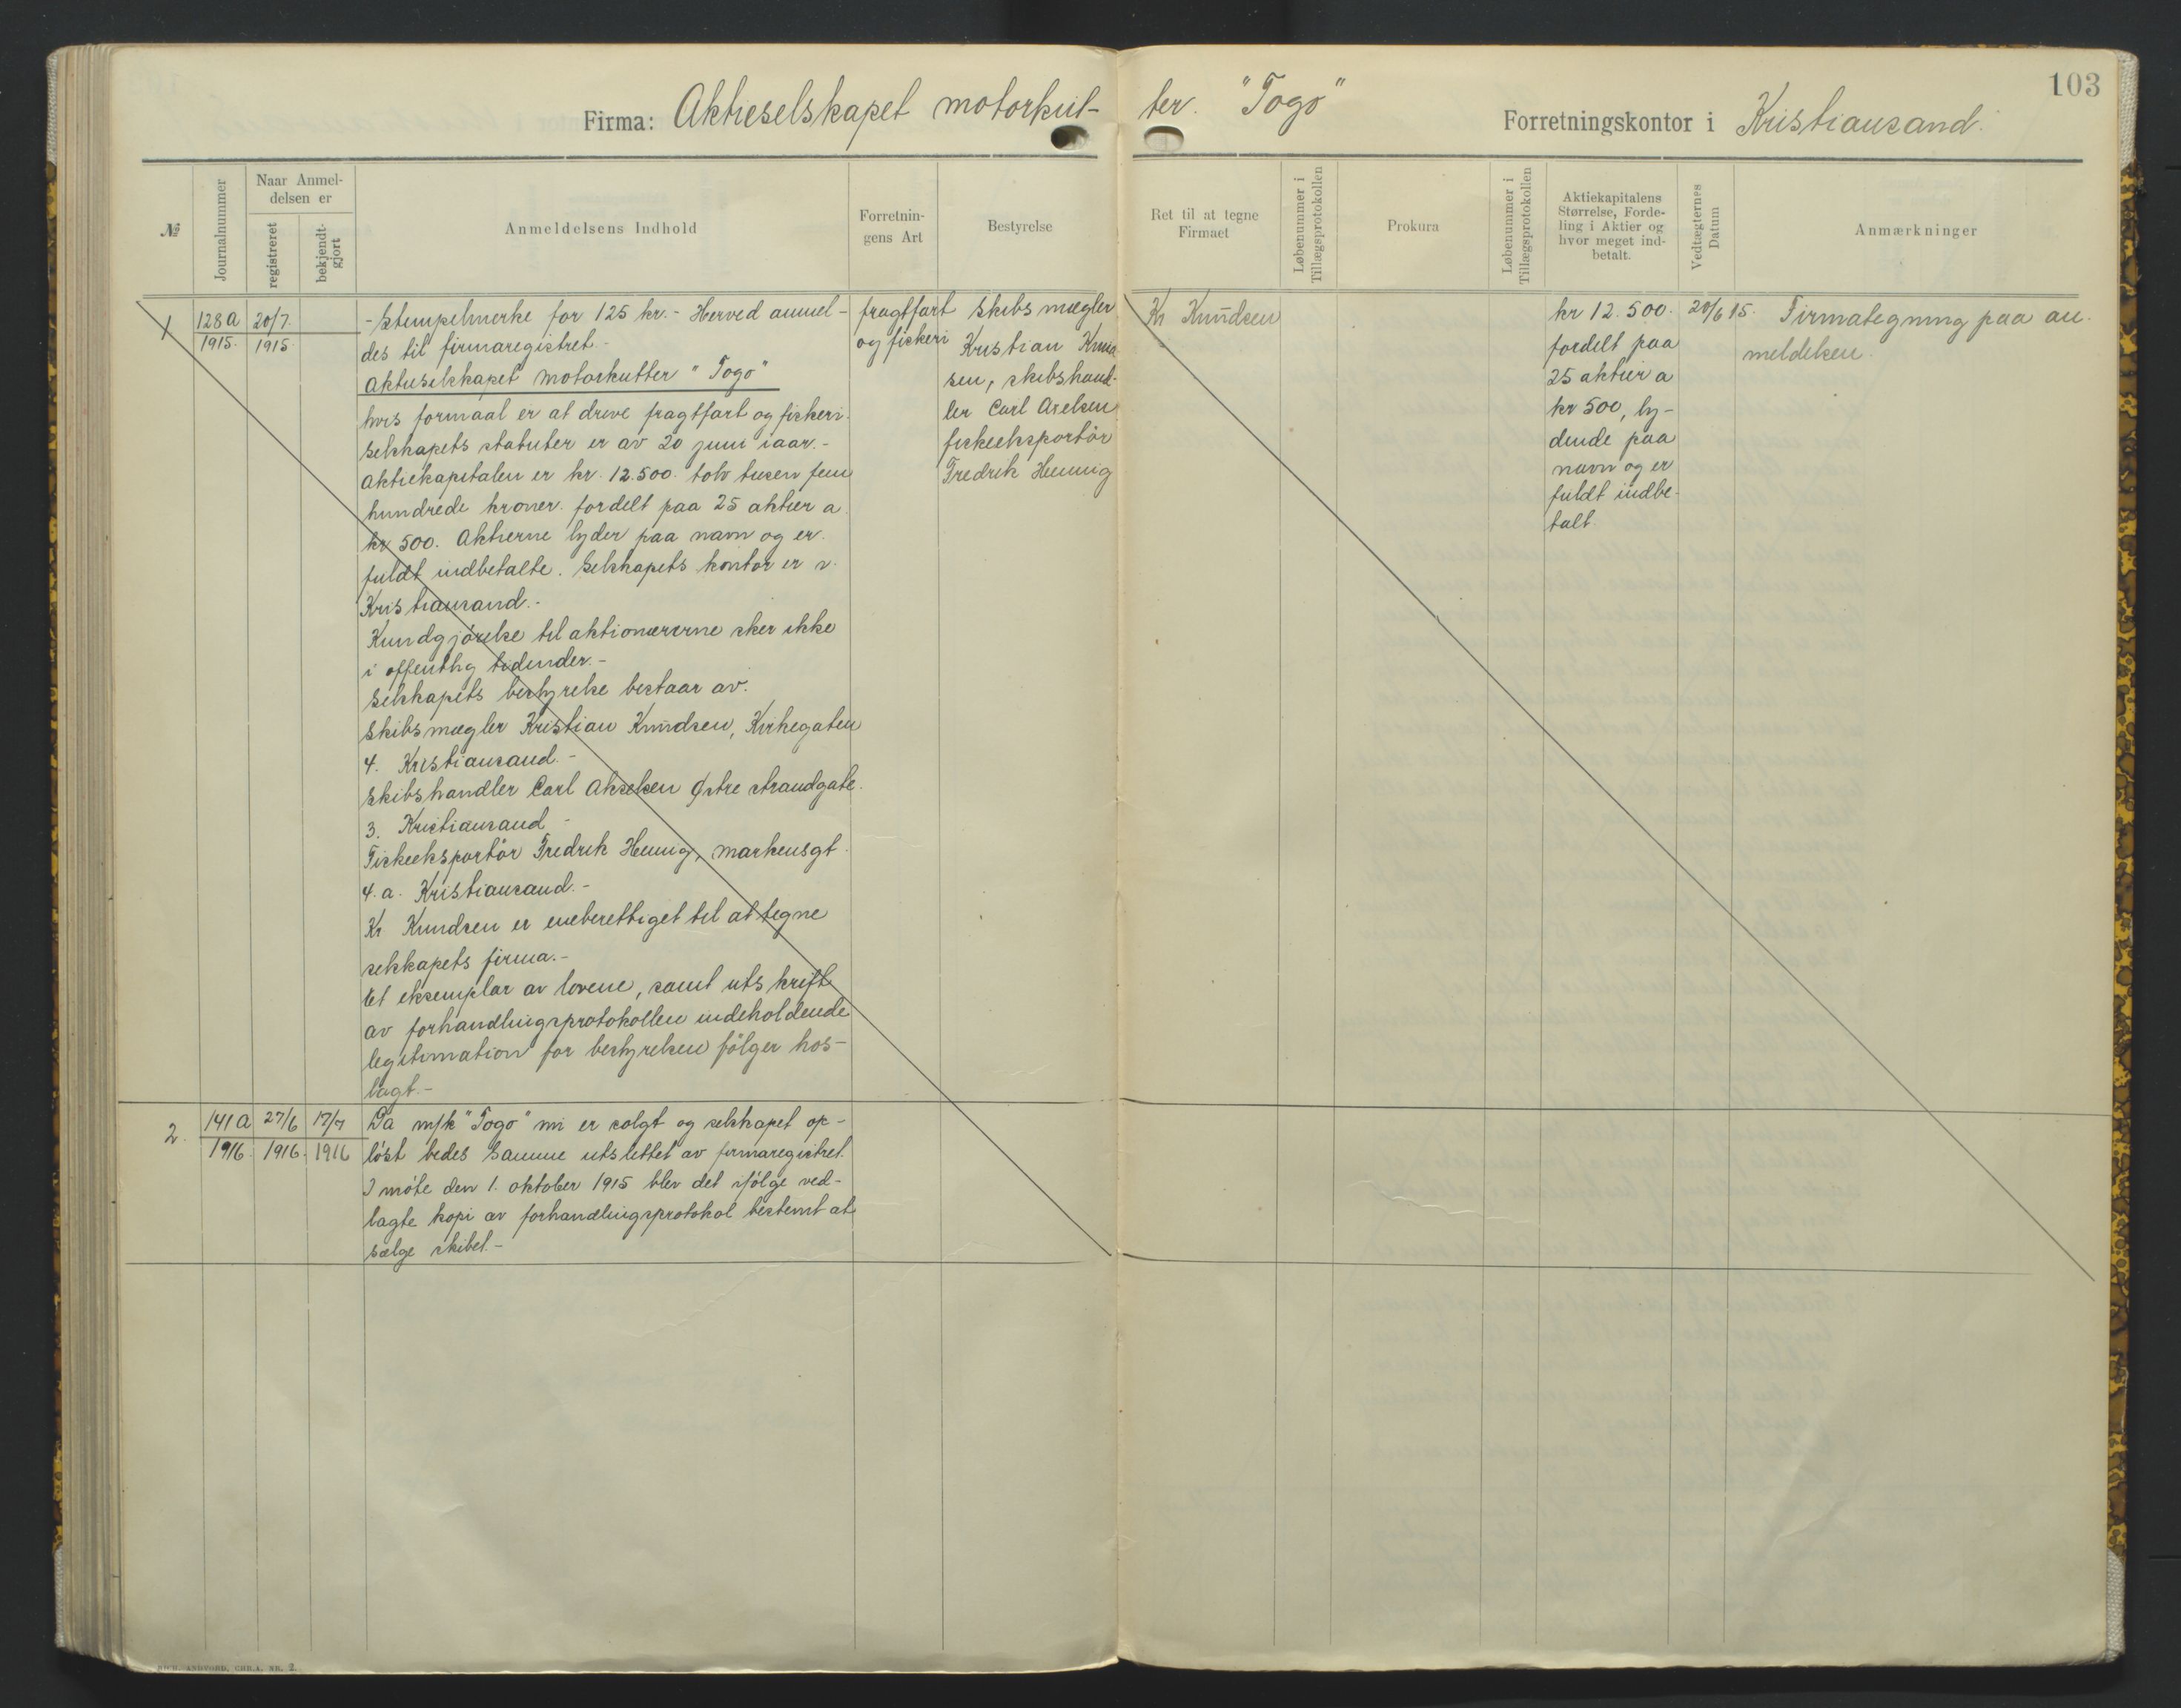 103
Firma: Aktieselskapet motorkut- ter. "Togo" Forretningskontor i Kristiansand.
№
Journalnummer
Naar Anmel-
delsen er
registreret
bekjendt-
gjort
Anmeldelsens Indhold
Forretnin-
gens Art
Bestyrelse
Ret til at tegne
Firmaet
Løbenummer i
Tillægsprotokollen
Prokura
Løbenummer i
Tillægsprotokollen
Aktiekapitalens
Størrelse, Forde-
ling i Aktier og
hvor meget ind-
betalt.
Vedtægternes
Datum
Anmærkninger
1
128a
1915.
20/7.
1915
- Stempelmerke for 125 kr. - Herved anmel-
des til firmaregistret. -
Aktieselskapet motorkutter "Togo"
hvis formaal er at drive fragtfart og fiskeri.
Selskapets statuter er av 20 juni iaar. -
Aktiekapitalen er kr. 12.500. tolv tusen fem
hundrede kroner. fordelt paa 25 aktier a
kr 500. Aktierne lyder paa navn og er.
fuldt indbetalte. Selskapets kontor er i.
Kristiansand. -
Kundgjörelse til aktionærerne sker ikke
i offentlig tidender. -
Selskapets bestyrelse bestaar av.
Skibsmægler Kristian Knudsen, Kirkegaten
4. Kristiansand. -
Skibshandler Carl Akselsen Østre strandgate.
3. Kristiansand -
Fiskeeksportör Fredrik Hennig, markensgt.
4.a. Kristiansand. -
Kr Knudsen er eneberettiget til at tegne
selskapets firma. -
Et eksemplar av lovene, samt utskrift
av forhandlingsprotokollen indeholdende
legitimation for bestyrelsen fölger hos-
lagt. -
fragtfart
og fiskeri
Skibsmægler
Kristian Knud
sen, skibshand-
ler Carl Axelsen
fiskeeksportör
Fredrik Hennig
Kr Knudsen
kr 12.500.
fordelt paa
25 aktier a
kr 500, ly-
dende paa
navn og er
fuldt indbe-
talt.
20/6 15.
Firmategning paa an-
meldelsen.
2.
141a
1916.
27/6
1916.
17/7
1916
Da m/k "Togo" nu er solgt og selskapet op-
löst bedes samme utslettet av firmaregistret.
I möte den 1. oktober 1915 blev det ifölge ved-
lagte kopi av forhandlingsprotokol bestemt at
sælge skibet. -
RICH. ANDVORD, CHR.A. NR. 2.